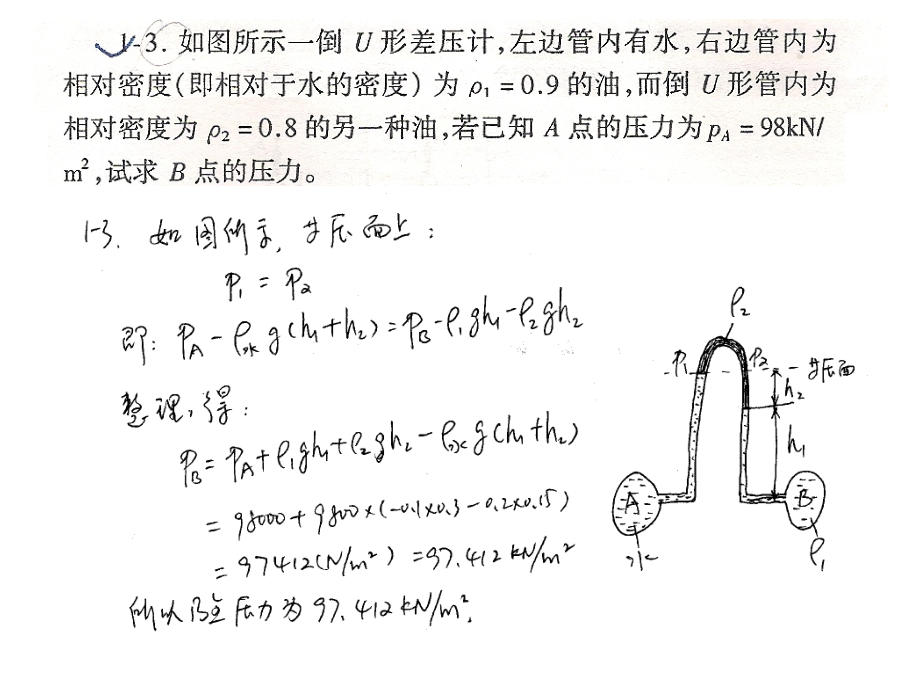 1-3. 如图所示一倒 U 形差压计,左边管内有水,右边管内为
相对密度(即相对于水的密度) 为 ρ₁ = 0.9 的油,而倒 U 形管内为
相对密度为 ρ₂ = 0.8 的另一种油,若已知 A 点的压力为 p_A = 98kN/
m²,试求 B 点的压力。
1-3. 如图所示, 等压面上:
P₁ = P₂
即: P_A - ρ水 g(h₁+h₂) = P_B - ρ₁gh₁ - ρ₂gh₂
整理,得:
P_B = P_A + ρ₁gh₁ + ρ₂gh₂ - ρ水 g(h₁+h₂)
= 98000 + 9800×(-0.1×0.3 - 0.2×0.15)
= 97412(N/m²) = 97.412 kN/m²
所以B点压力为 97.412 kN/m²。
ρ₂
P₁
P₂
等压面
h₂
h₁
A
B
水
ρ₁